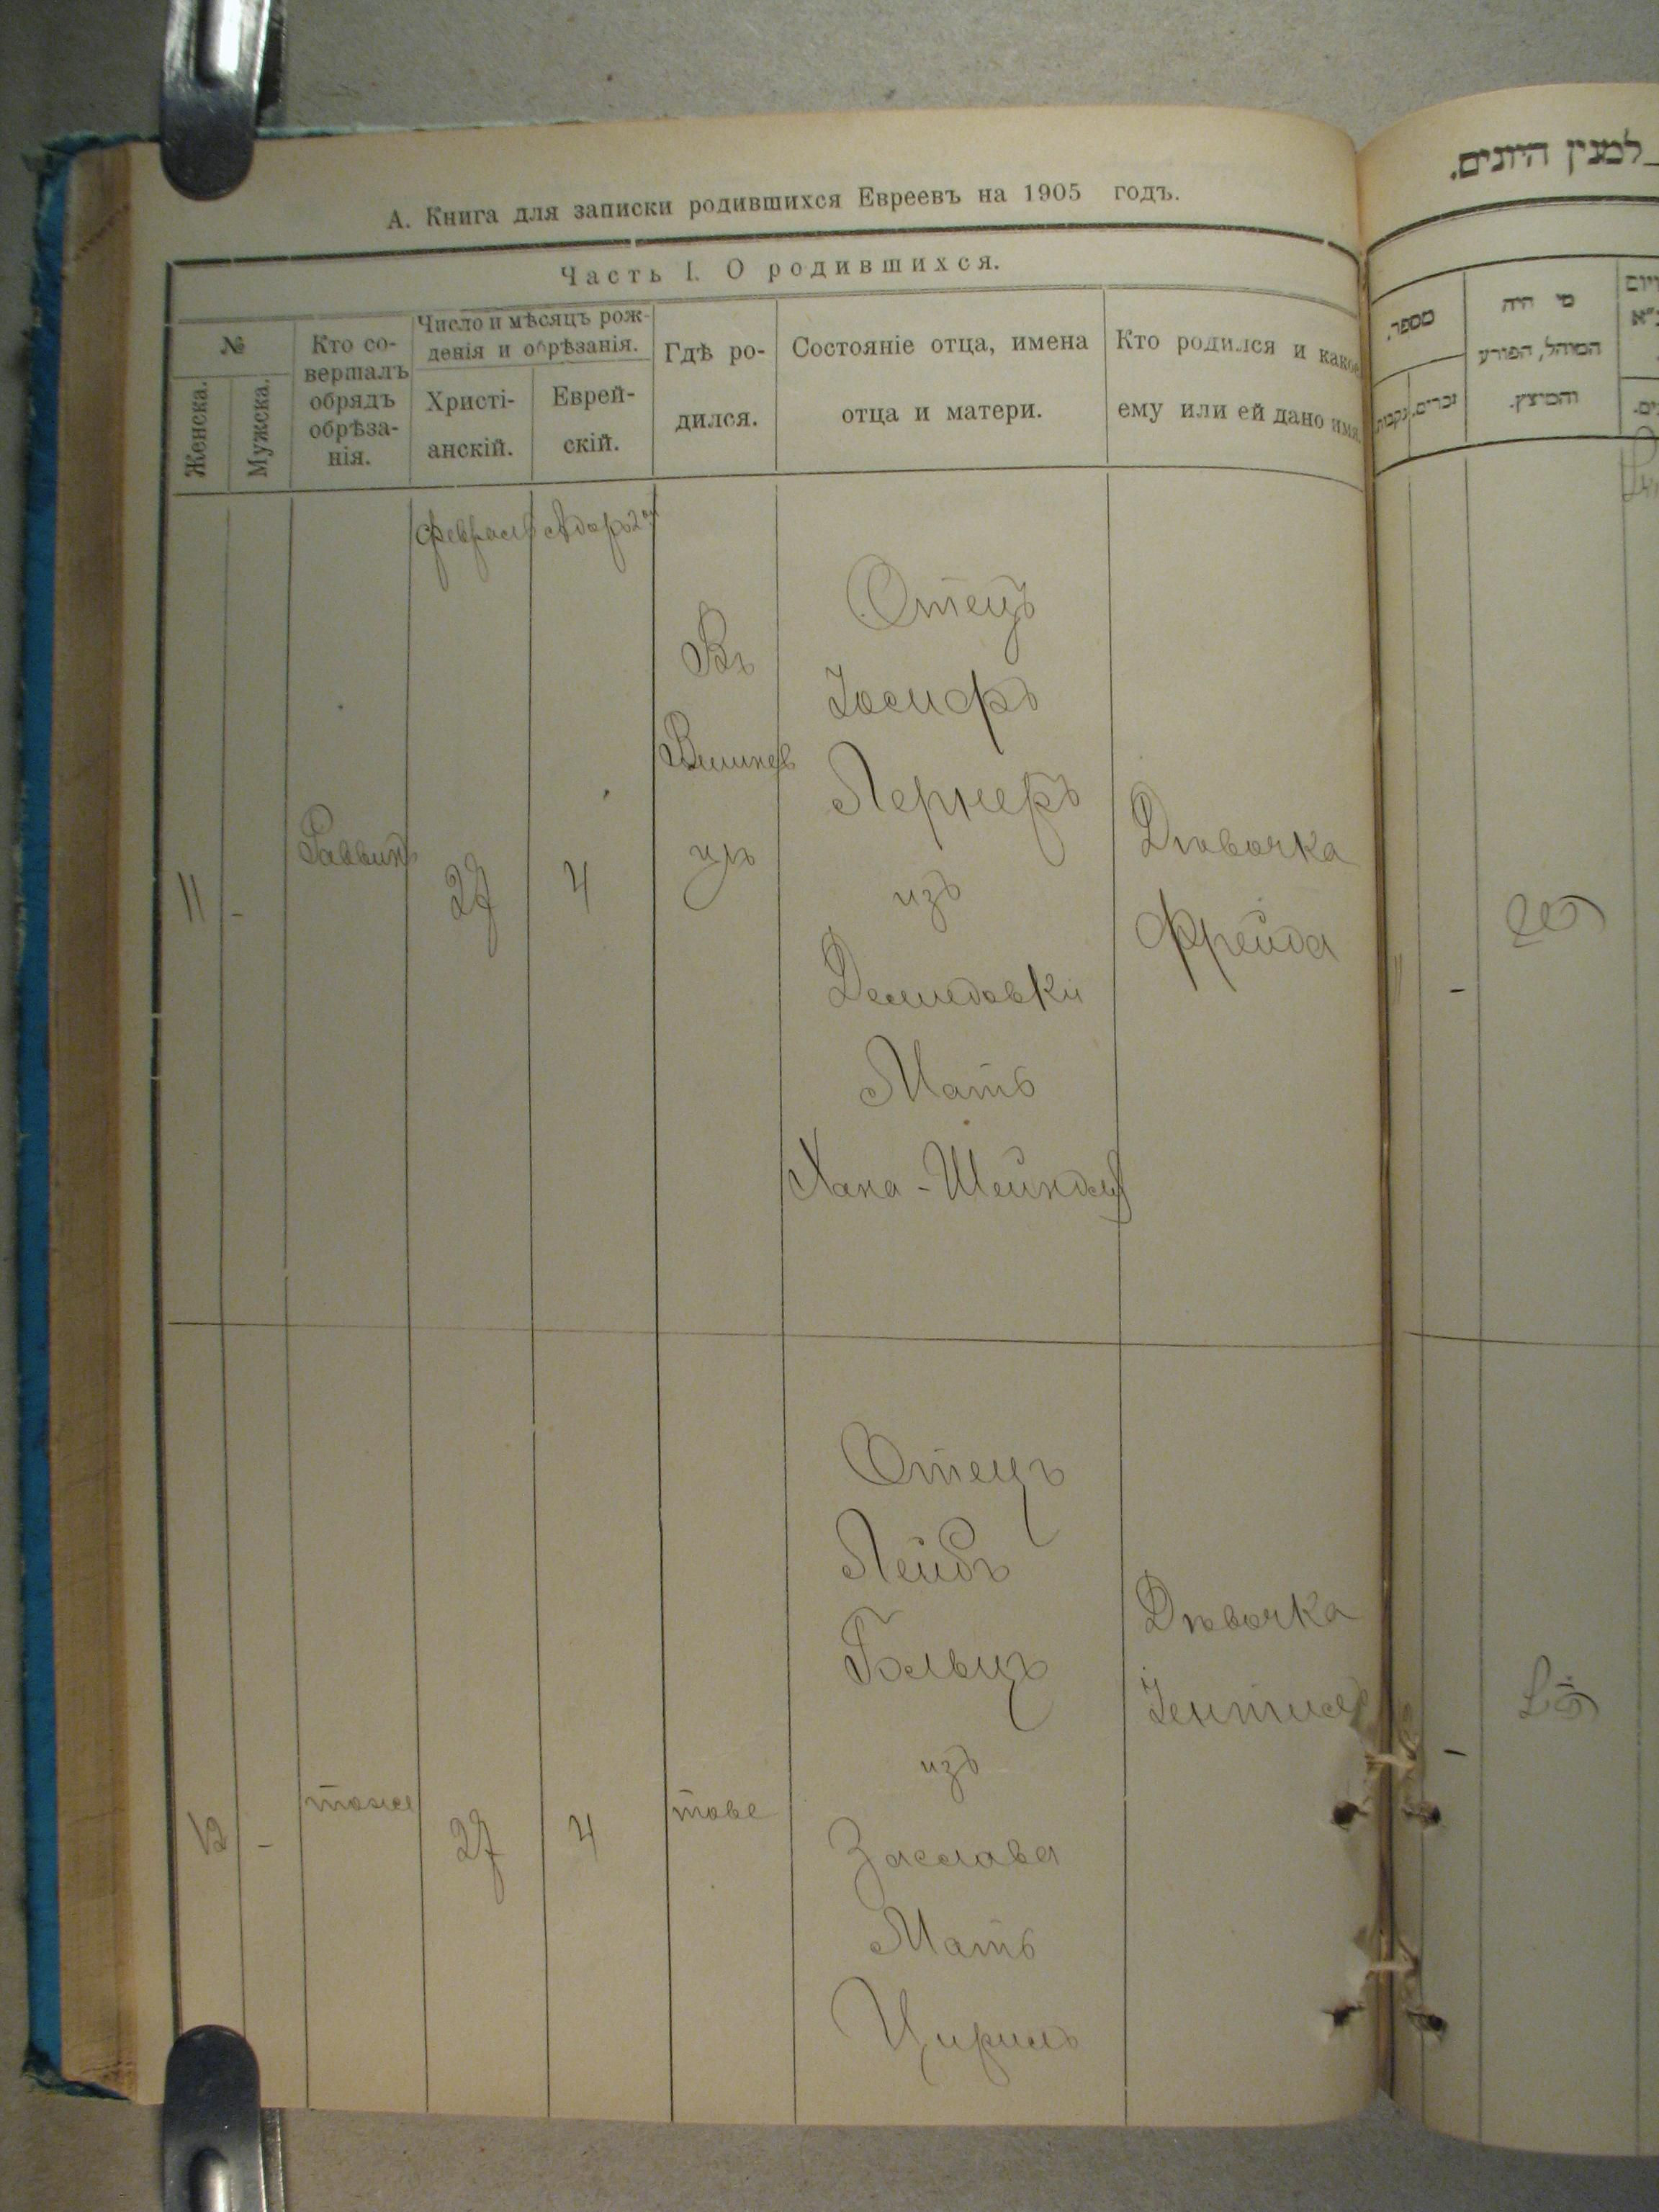 А. Книга для записки родившихся Евреевъ на 1905 годъ.
Часть I. О родившихся.
№
Женска.
Мужска.
Кто со-
вершалъ
обрядъ
обрѣза-
нія.
Число и мѣсяцъ рож-
денія и обрѣзанія.
Христі-
анскій.
Еврей-
скій.
Гдѣ ро-
дился.
Состояніе отца, имена
отца и матери.
Кто родился и какое
ему или ей дано имя.
Февраль Адаръ 2й
11
-
Раввинъ
27
4
Въ
Вишнев
цѣ
Отецъ
Іосифъ
Лернеръ
изъ
Демидовки
Мать
Хана-Шейндель
Дѣвочка
Фрейда
12
-
тоже
27
4
тове
Отецъ
Лейбъ
Гольцъ
изъ
Заслава
Мать
Цирилъ
Дѣвочка
Іентиль
למנין היונים.
מספר.
זכרים.
נקבות
מי היה
המוהל, הפורע
והמוצץ.
11
-
-